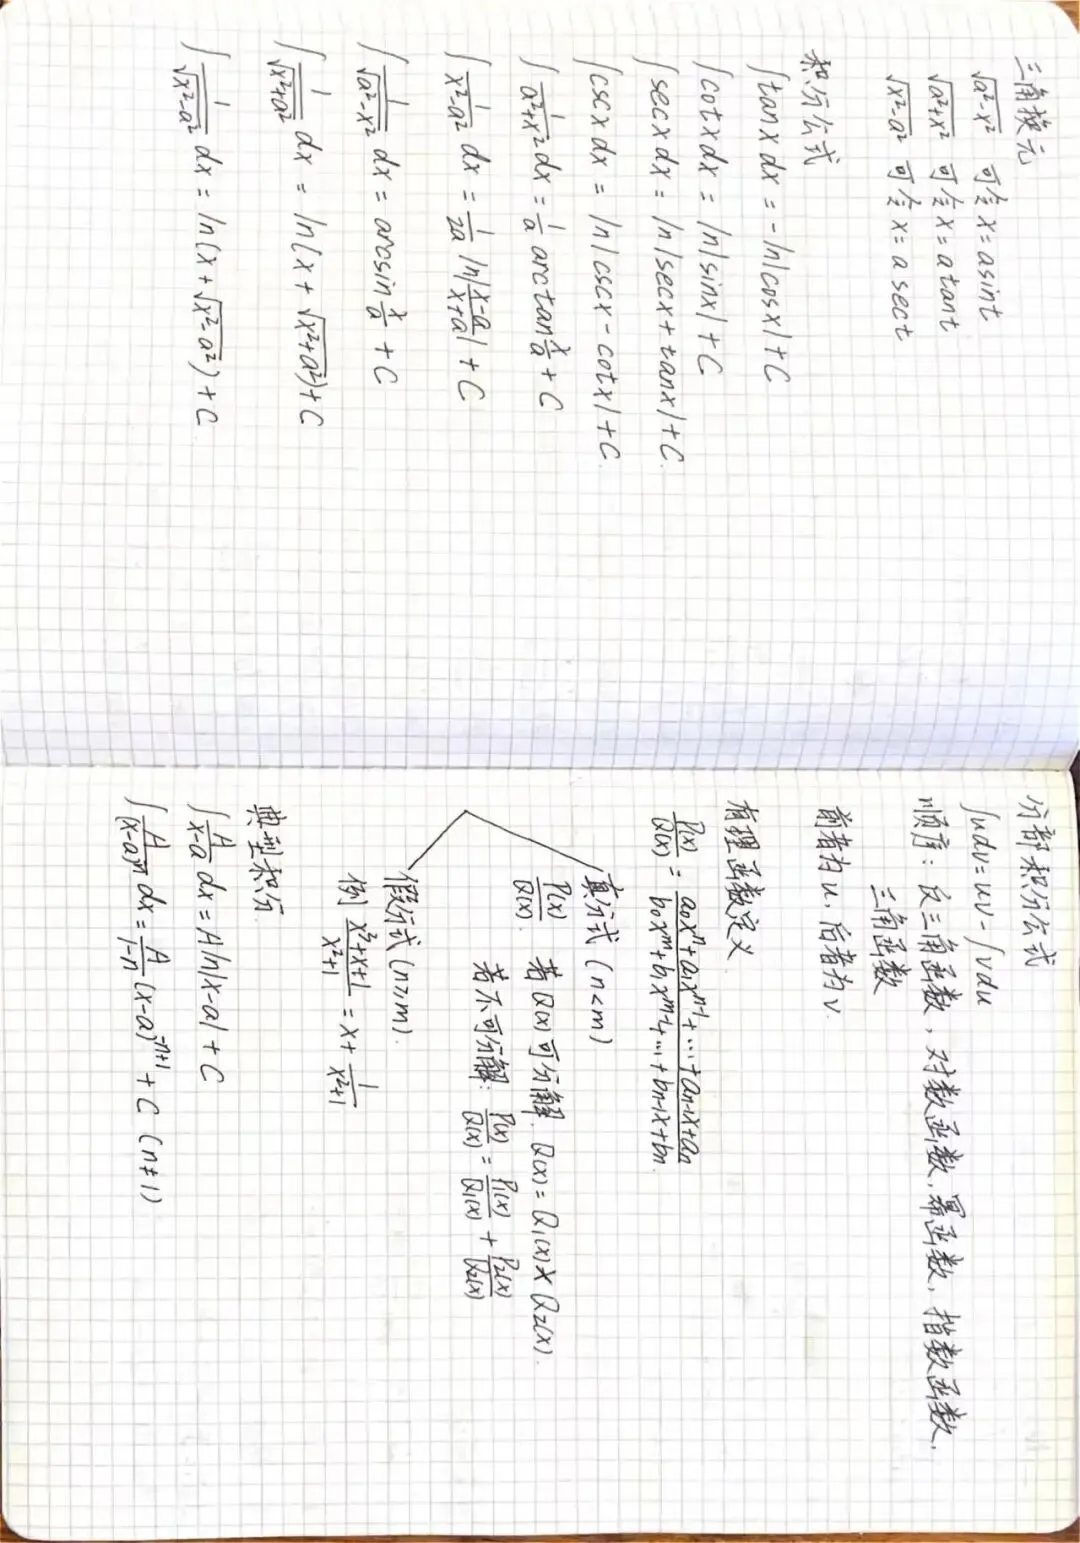 三角换元
√(a²-x²) 可令 x=asint
√(a²+x²) 可令 x=atant
√(x²-a²) 可令 x=asect
积分公式
∫tanxdx = -ln|cosx|+C
∫cotxdx = ln|sinx|+C
∫secxdx = ln|secx+tanx|+C
∫cscxdx = ln|cscx-cotx|+C
∫1/(a²+x²)dx = 1/a arctan x/a + C
∫1/(x²-a²)dx = 1/2a ln|(x-a)/(x+a)|+C
∫1/√(a²-x²)dx = arcsin x/a + C
∫1/√(x²+a²)dx = ln(x+√(x²+a²))+C
∫1/√(x²-a²)dx = ln(x+√(x²-a²))+C
分部积分公式
∫udv=uv-∫vdu
顺序:反三角函数,对数函数,幂函数,指数函数,
三角函数
前者为u,后者为v
有理函数定义
P(x)/Q(x) = (a₀xⁿ+a₁xⁿ⁻¹+…+aₙ₋₁x+aₙ)/(b₀xᵐ+b₁xᵐ⁻¹+…+bₙ₋₁x+bₙ)
真分式(n<m)
P(x)/Q(x). 若Q(x)可分解 Q(x)=Q₁(x)×Q₂(x).
若不可分解: P(x)/Q(x) = P₁(x)/Q₁(x) + P₂(x)/Q₂(x)
假分式(n≥m)
例 (x³+x+1)/(x²+1) = x+1/(x²+1)
典型积分
∫A/(x-a)dx=Aln|x-a|+C
∫A/(x-a)ⁿdx=A/(1-n)(x-a)⁻ⁿ⁺¹+C (n≠1)